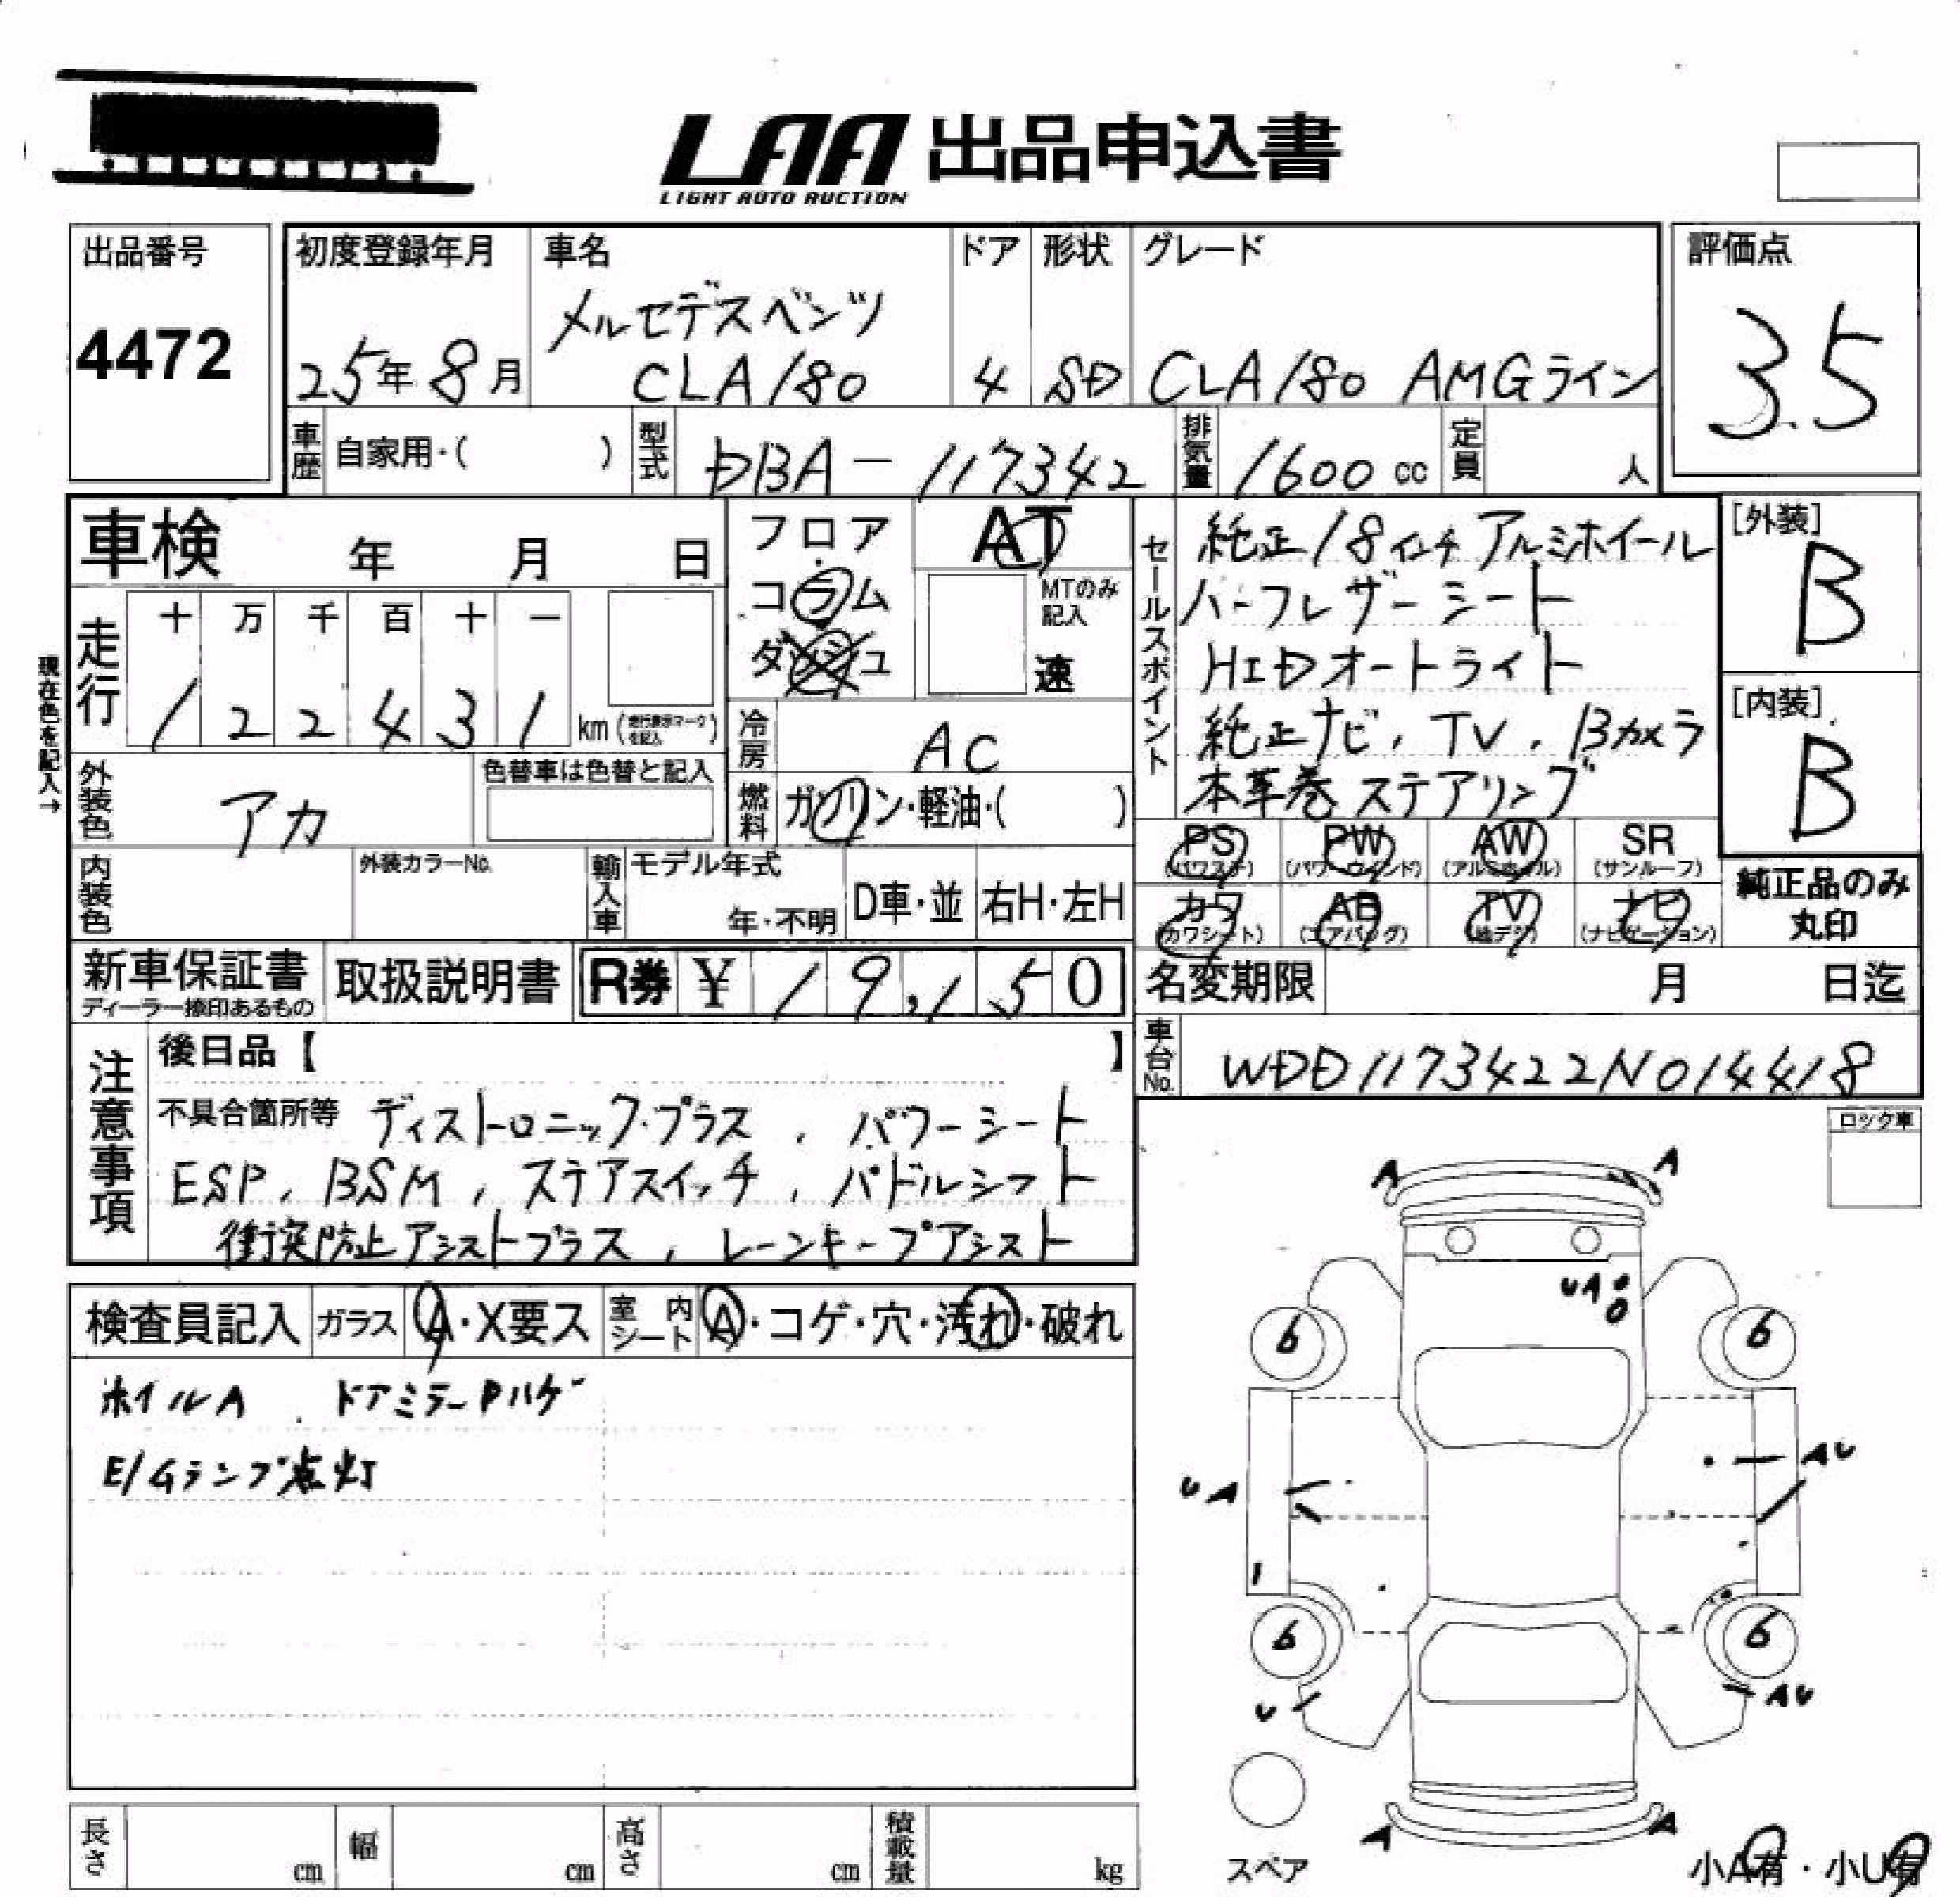 LAA 出品申込書
LIGHT AUTO AUCTION
出品番号
4472
初度登録年月
25年 8月
車名
メルセデスベンツ
CLA180
ドア
4
形状
SD
グレード
CLA180 AMGライン
評価点
3.5
車歴 自家用・( )
型式 DBA-117342
排気量 1600 cc
定員 人
車検 年 月 日
フロア
・
コラム
ダッシュ
AT
MTのみ
記入
速
走行
十 万 千 百 十 一
1 2 2 4 3 1 km(走行表示マークを記入)
現在色を記入→
外装色 アカ
色替車は色替と記入
冷房 AC
燃料 ガソリン・軽油・( )
内装色
外装カラーNo.
輸入車 モデル年式
年・不明
D車・並
右H・左H
セールスポイント
純正18インチアルミホイール
ハーフレザーシート
HIDオートライト
純正ナビ, TV, Bカメラ
本革巻ステアリング
[外装]
B
[内装]
B
PS
(パワステ)
PW
(パワーウインド)
AW
(アルミホイル)
SR
(サンルーフ)
カワ
(カワシート)
AB
(エアバッグ)
TV
(地デジ)
ナビ
(ナビゲーション)
純正品のみ
丸印
新車保証書
ディーラー捺印あるもの
取扱説明書
R券 ¥ 19,150
名変期限 月 日迄
車台No. WDD1173422N014418
注意事項
後日品【 】
不具合箇所等 ディストロニック・プラス, パワーシート
ESP, BSM, ステアスイッチ, パドルシフト
衝突防止アシストプラス, レーンキープアシスト
ロック車
検査員記入 ガラス A・X要ス 室内シート A・コゲ・穴・汚れ・破れ
ホイルA . ドアミラーPハゲ
E/Gランプ点灯
A A
UA
6 6
UA AU
6 6
U AU
A A
スペア
小A有・小U有
長さ cm
幅 cm
高さ cm
積載量 kg